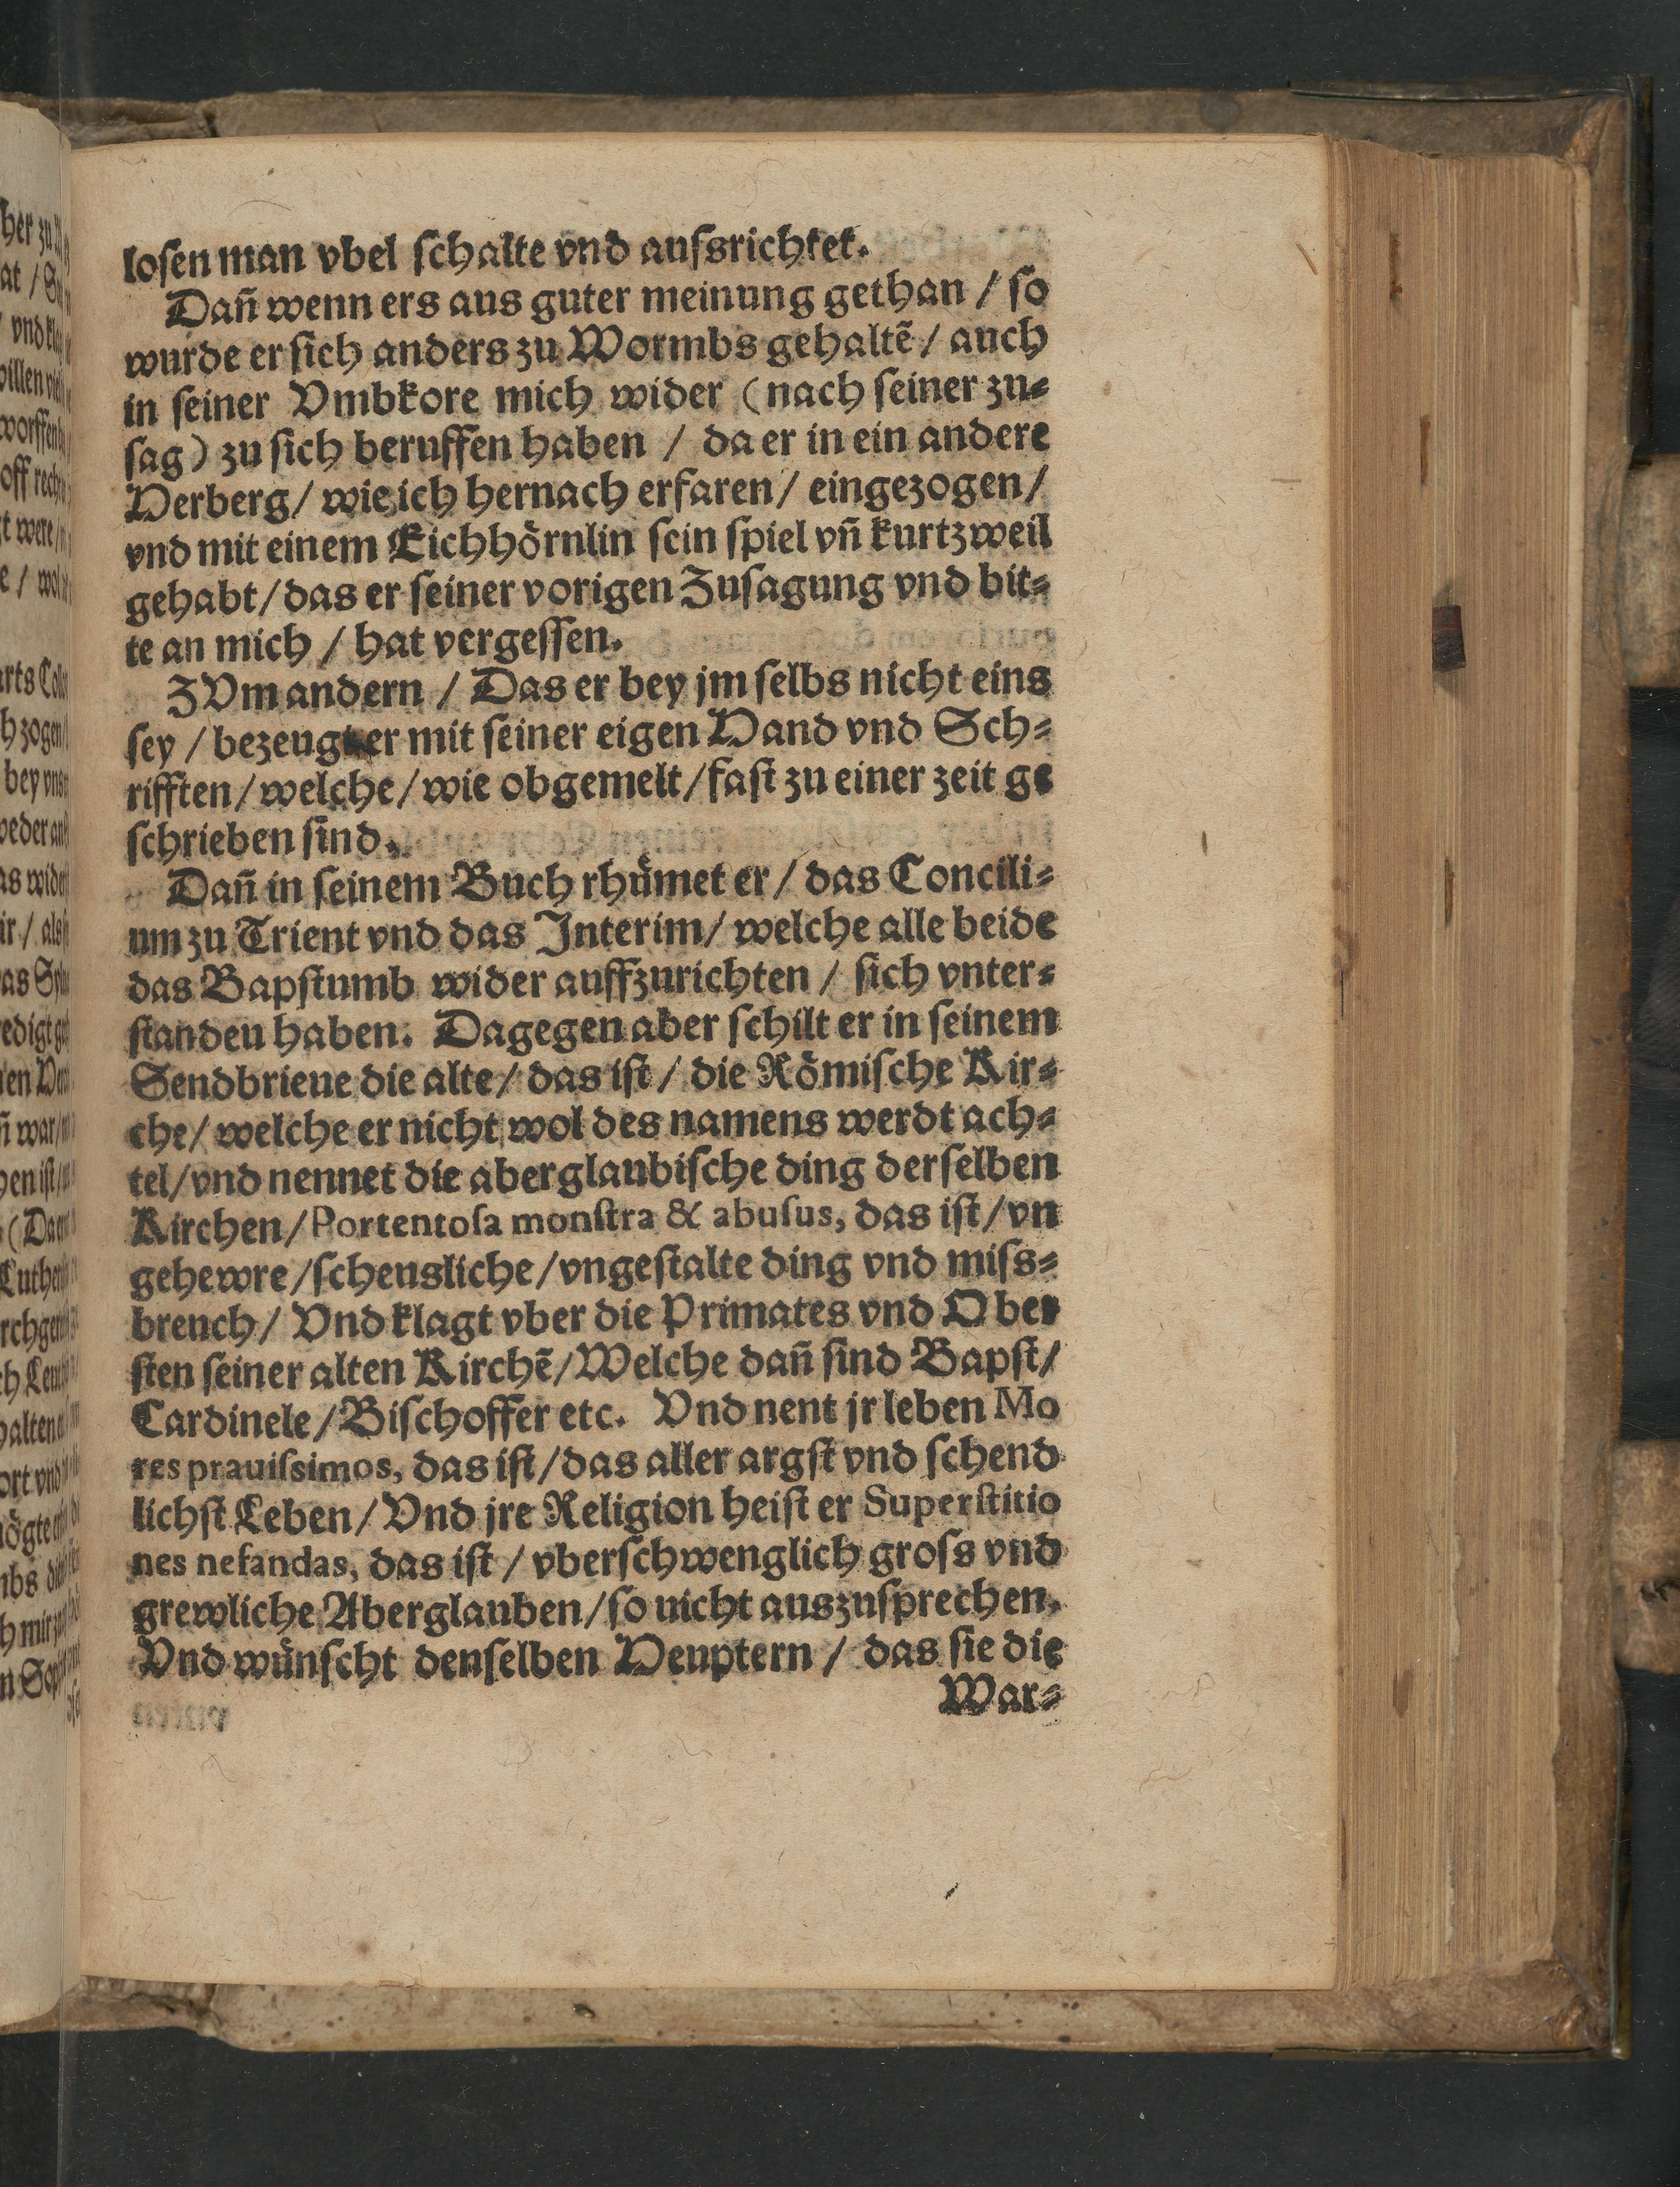 losen man vbel schalte vnd ausrichtet.
Dañ wenn ers aus guter meinung gethan / so
wurde er sich anders zu Wormbs gehaltẽ / auch
in seiner Vmbkore mich wider (nach seiner zu⸗
sag) zu sich beruffen haben / da er in ein andere
Herberg / wie ich hernach erfaren / eingezogen /
vnd mit einem Eichhörnlin sein spiel vñ kurtzweil
gehabt / das er seiner vorigen Zusagung vnd bit⸗
te an mich / hat vergessen.
ZVm andern / Das er bey jm selbs nicht eins
sey / bezeugt er mit seiner eigen Hand vnd Sch⸗
rifften / welche / wie obgemelt / fast zu einer zeit ge
schrieben sind.
Dañ in seinem Buch rhümet er / das Concili⸗
um zu Trient vnd das Interim / welche alle beide
das Bapstumb wider auffzurichten / sich vnter⸗
standeu haben. Dagegen aber schilt er in seinem
Sendbrieue die alte / das ist / die Römische Kir⸗
che / welche er nicht wol des namens werdt ach⸗
tel / vnd nennet die aberglaubische ding derselben
Kirchen / Portentosa monstra & abusus, das ist / vn
gehewre / scheusliche / vngestalte ding vnd miss⸗
breuch / Vnd klagt vber die Primates vnd Ober
sten seiner alten Kirchẽ / Welche dañ sind Bapst /
Cardinele / Bischoffer etc. Vnd nent jr leben Mo
res prauissimos, das ist / das aller argst vnd schend
lichst Leben / Vnd jre Religion heist er Superstitio
nes nefandas, das ist / vberschwenglich gross vnd
grewliche Aberglauben / so nicht auszusprechen.
Vnd wünscht denselben Heuptern / das sie die
War⸗